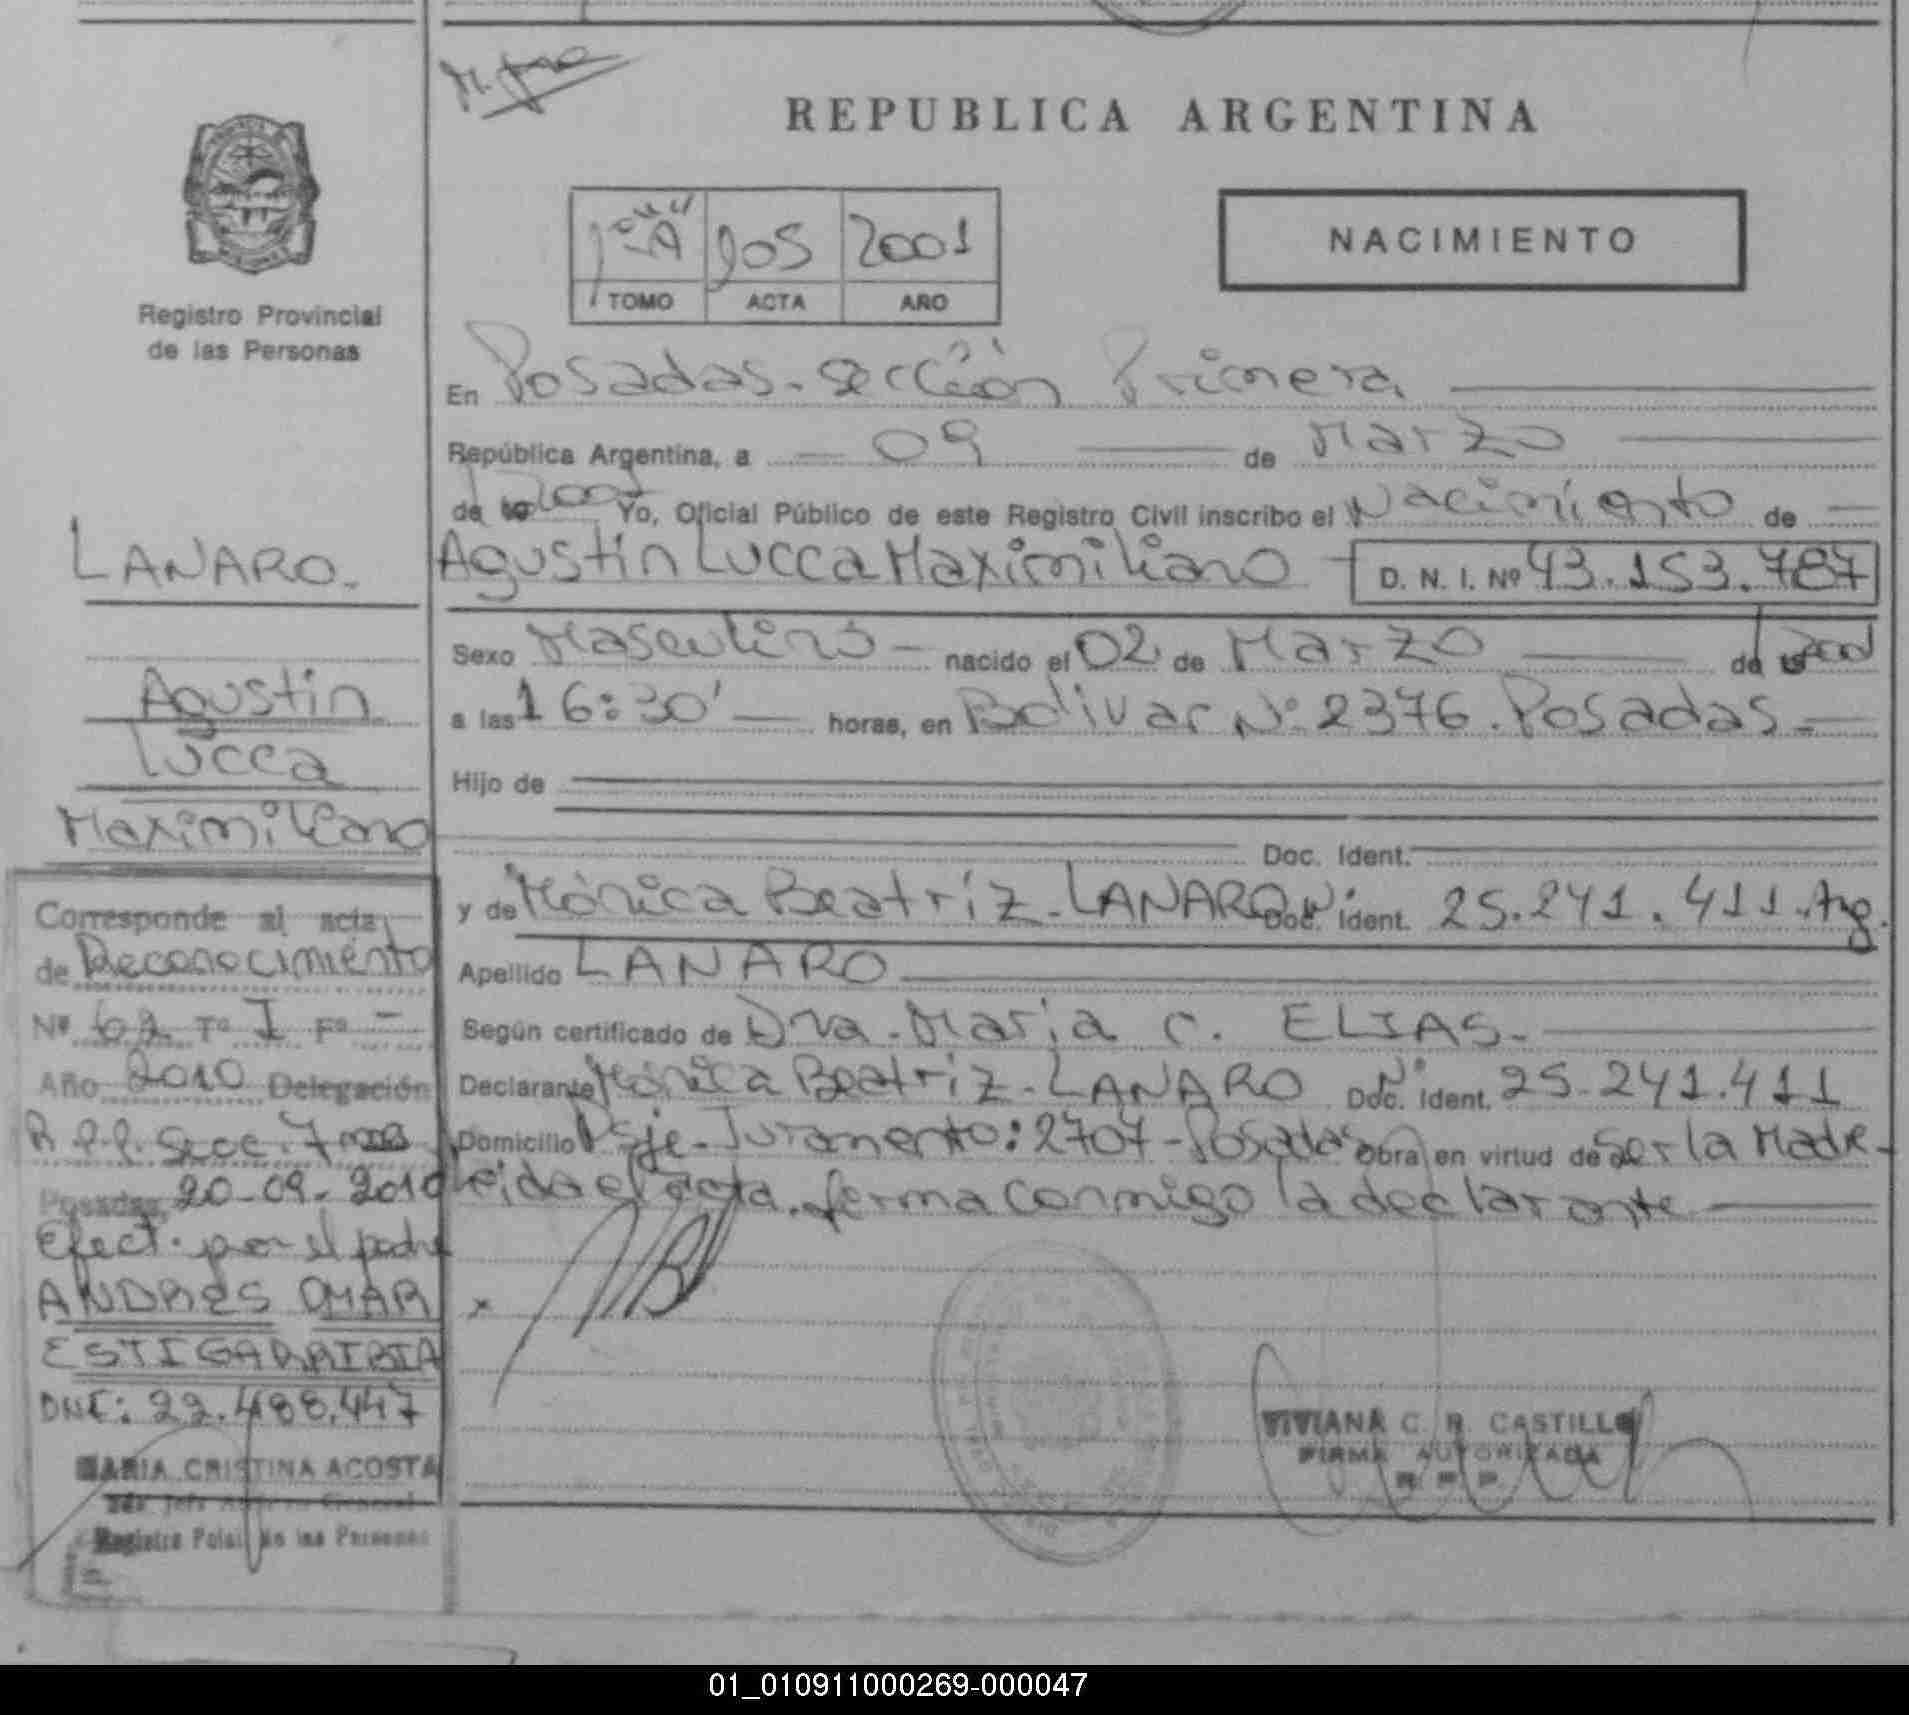 REPUBLICA ARGENTINA
1º "A" 905 2001
TOMO ACTA AÑO
NACIMIENTO
Registro Provincial
de las Personas
LANARO.
Agustín
Lucca
Maximiliano
En Posadas-sección Primera
República Argentina, a 09 de Marzo
de 2001 Yo, Oficial Público de este Registro Civil inscribo el Nacimiento de
Agustín Lucca Maximiliano D. N. I. Nº 43.153.787
Sexo Masculino nacido el 02 de Marzo de 2001
a las 16:30' horas, en Bolivar Nº 2376. Posadas.
Hijo de
Doc. Ident.
y de Mónica Beatríz-LANARO Doc. Ident. Nº 25.241.411.Arg.
Apellido LANARO
Según certificado de Dra. María C. ELIAS.
Declarante Mónica Beatríz-LANARO Doc. Ident. Nº 25.241.411
Domicilio Psje-Juramento: 2707-Posadas obra en virtud de ser la Madre-
leída el acta, firma conmigo la declarante
VIVIANA C. R. CASTILLO
FIRMA AUTORIZADA
R P P
Corresponde al acta
de Reconocimiento
Nº 62 Tº I Fº -
Año 2010 Delegación
R.P.P. Secc. 7
Posadas, 20-09-2010
Efect. por el padre
ANDRES OMAR
ESTIGARRIBIA
DNI: 22.488.447
MARIA CRISTINA ACOSTA
01_010911000269-000047